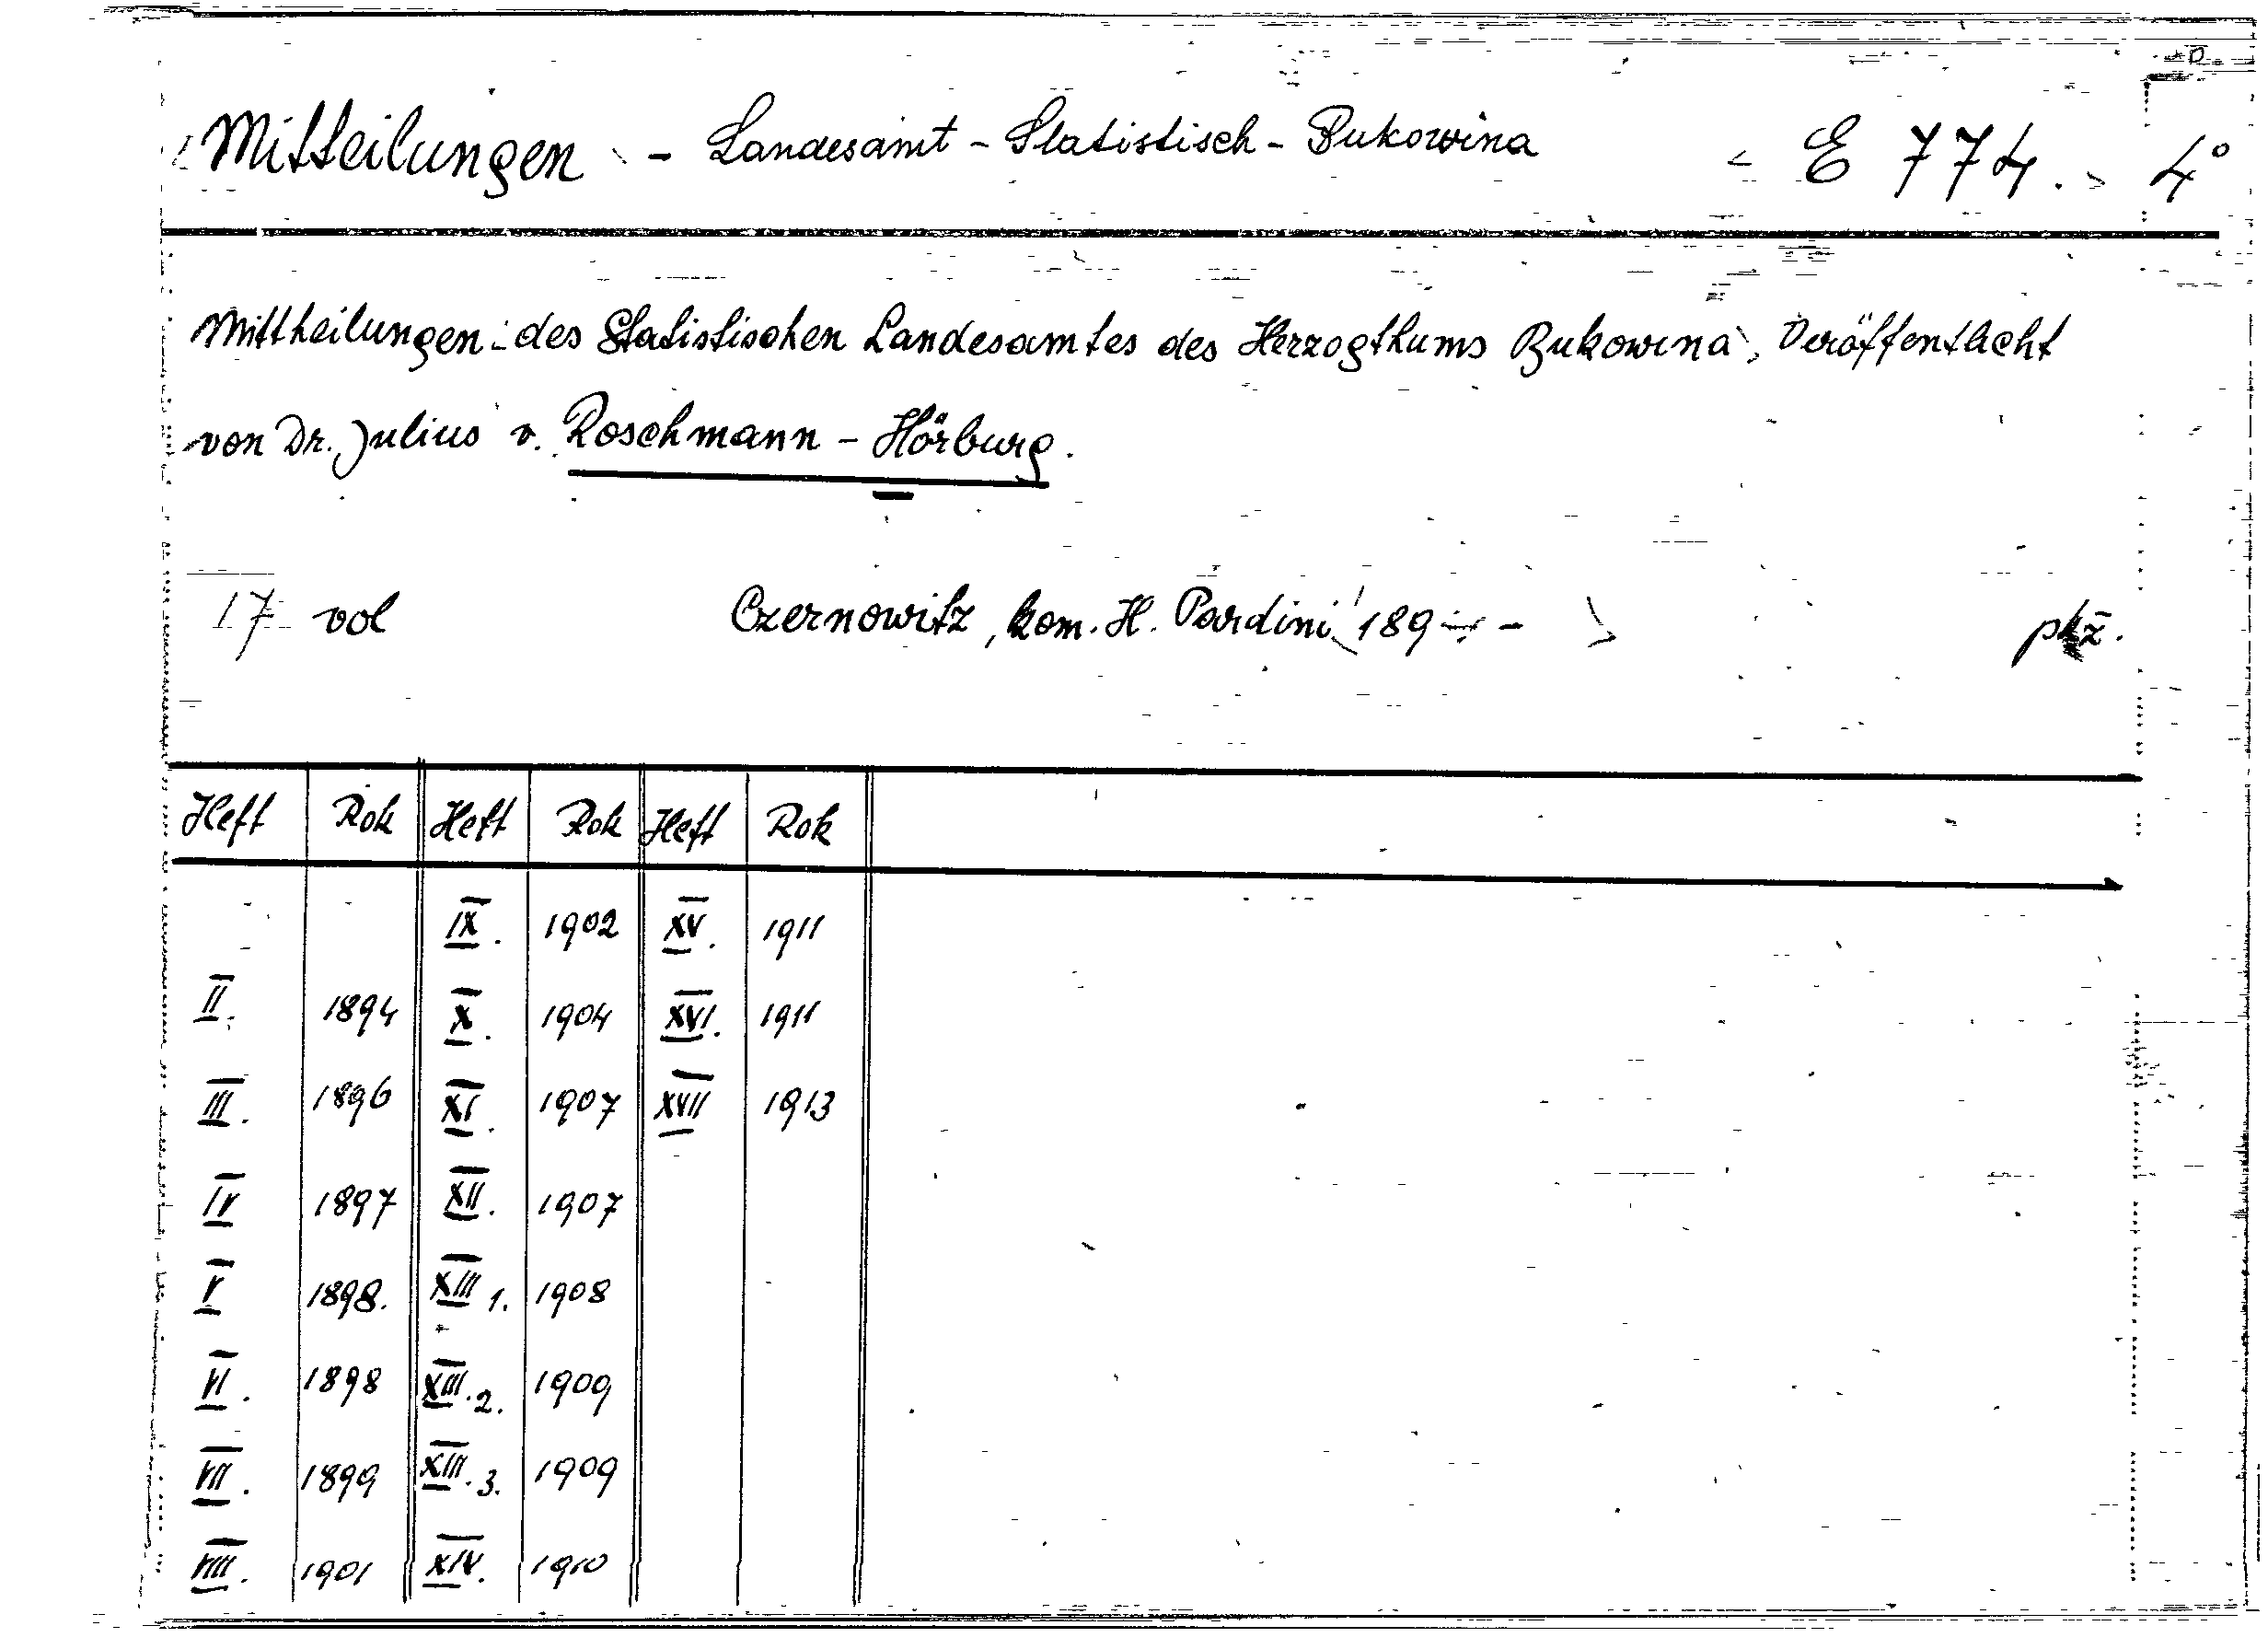 Mitteilungen - Landesamt - Statistisch - Bukowina E 774. 4°
Mittheilungen des Statistischen Landesamtes des Herzogthums Bukowina, Veröffentlicht
von Dr. Julius v. Roschmann - Hörburg.
17 vol Czernowitz, kom. H. Pardini 189 -
Heft Rok Heft Rok Heft Rok
IX. 1902 XV. 1911
II. 1894 X. 1904 XVI. 1911
III. 1896 XI. 1907 XVII 1913
IV 1897 XII. 1907
V 1898. XIII 1. 1908
VI. 1898 XIII. 2. 1909
VII. 1899 XIII. 3. 1909
VIII. 1901 XIV. 1910